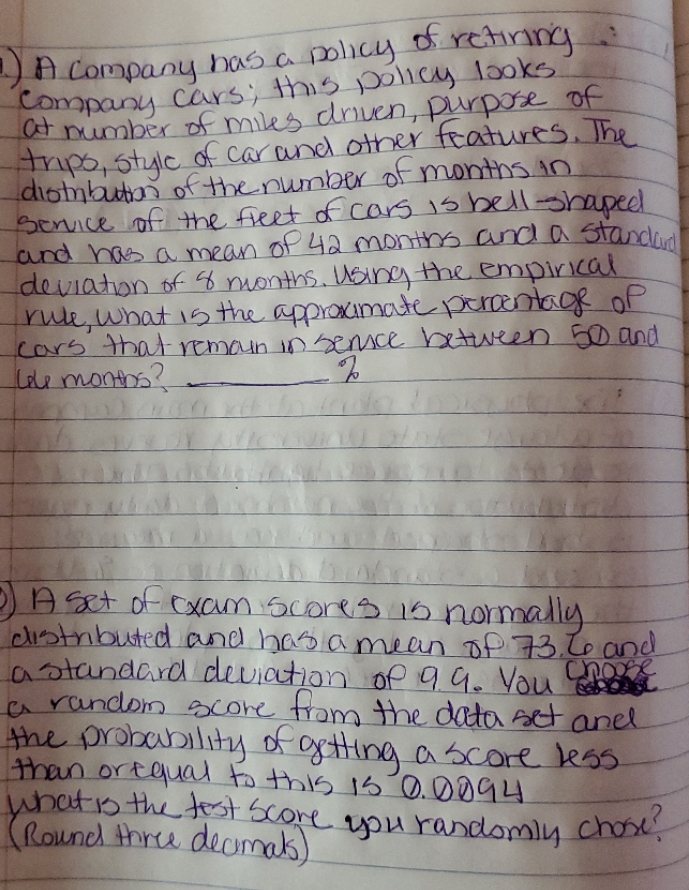 1.) A company has a policy of retiring
company cars; this policy looks
at number of miles driven, purpose of
trips, style of car and other features. The
distribution of the number of months in
service of the fleet of cars is bell-shaped
and has a mean of 42 months and a standard
deviation of 8 months. Using the empirical
rule, what is the approximate percentage of
cars that remain in service between 50 and
months? ________ %
) A set of exam scores is normally
distributed and has a mean of 73.6 and
a standard deviation of 9.9. You choose
a random score from the data set and
the probability of getting a score less
than or equal to this is 0.0094
what is the test score you randomly chose?
(Round three decimals)